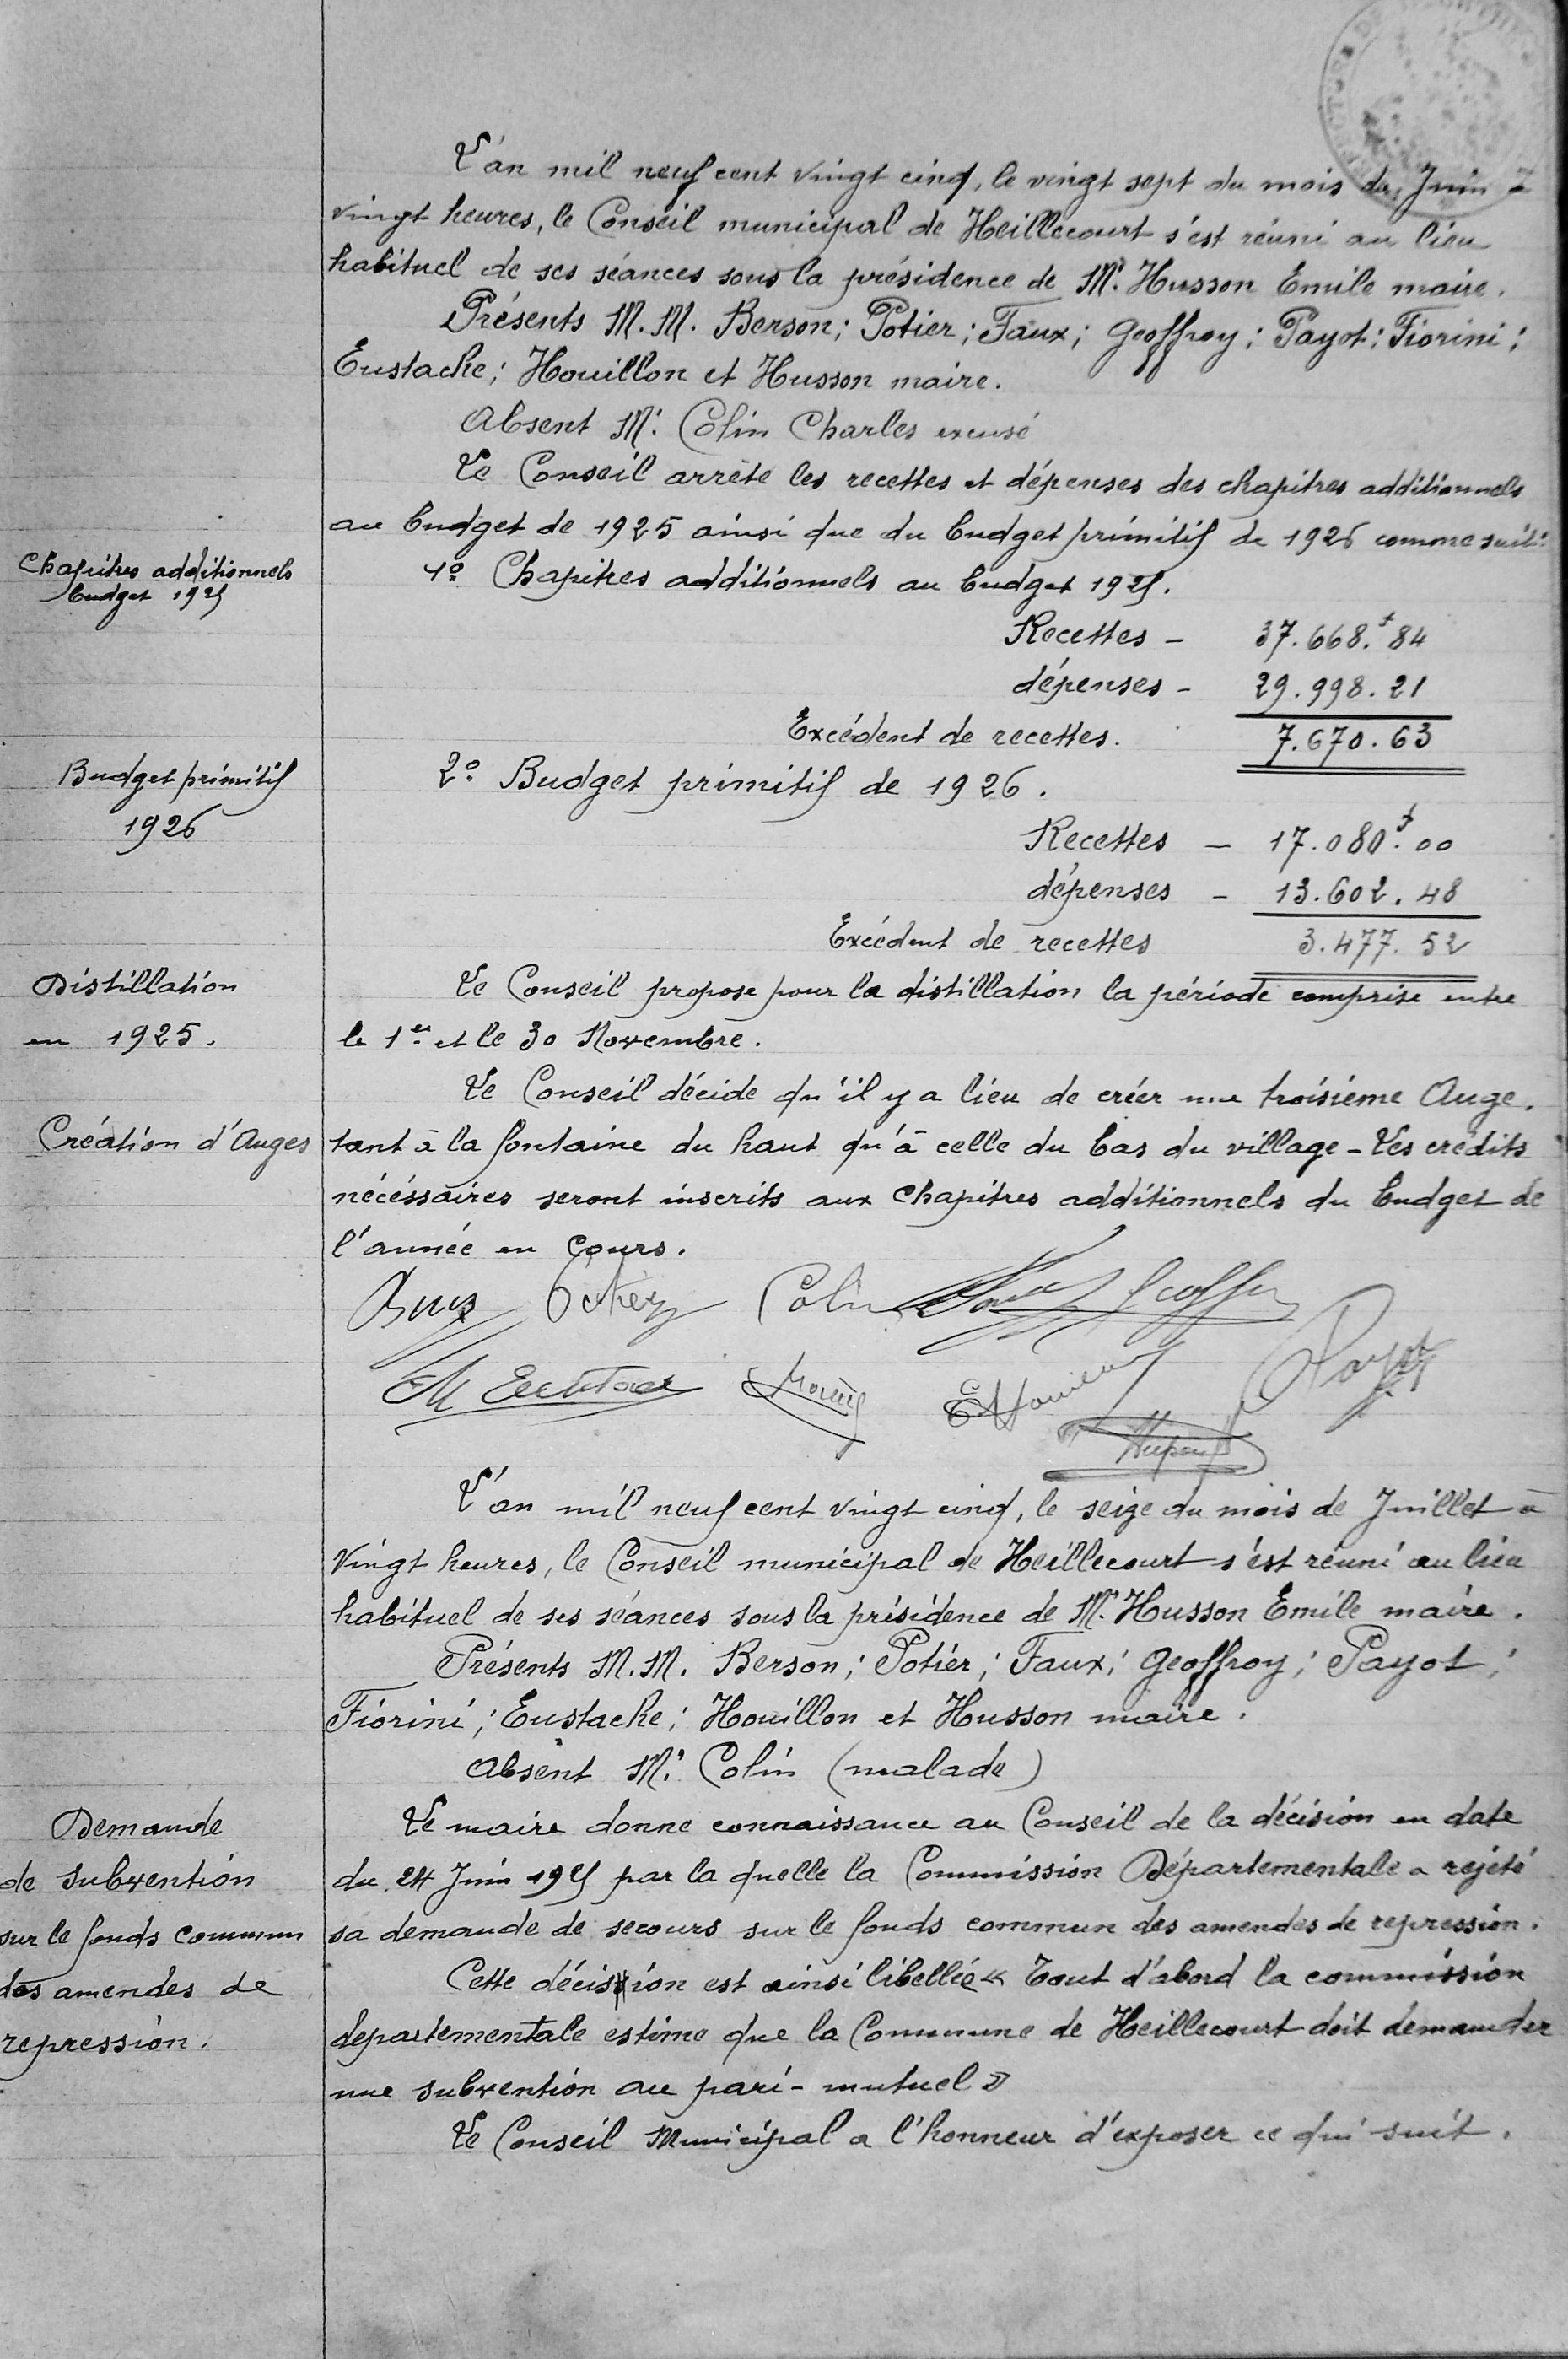 L'an mil neuf cent vingt cinq, le vingt sept du mois de Juin à
vingt heures, le Conseil municipal de Heillecourt s'est réuni au lieu
habituel de ses séances sous la présidence de Mr. Husson Emile maire.
Présents M.M. Berson; Potier; Faux; Geoffroy; Payot; Fiorini;
Eustache; Houillon et Husson maire.
Absent Mr. Colin Charles excusé
Le Conseil arrête les recettes et dépenses des chapitres additionnels
au budget de 1925 ainsi que du budget primitif de 1926 comme suit:
Chapitres additionnels
budget 1925
1º Chapitres additionnels au budget 1925.
Recettes - 37.668.f84
dépenses - 29.998.21
Excédent de recettes. 7.670.63
Budget primitif
1926
2º. Budget primitif de 1926.
Recettes - 17.080.f00
dépenses - 13.602.48
Excédent de recettes 3.477.52
Distillation
en 1925.
Le Conseil propose pour la distillation la période comprise entre
le 1er et le 30 Novembre.
Le Conseil décide qu'il y a lieu de créer une troisième Auge.
Création d'Auges
tant à la fontaine du haut qu'à celle du bas du village - Les crédits
nécéssaires seront inscrits aux chapitres additionnels du budget de
l'année en cours.
Colin
Payot
L'an mil neuf cent vingt cinq, le seize du mois de Juillet à
vingt heures, le Conseil municipal de Heillecourt s'est réuni au lieu
habituel de ses séances sous la présidence de Mr. Husson Emile maire.
Présents M.M. Berson; Potier; Faux; Geoffroy; Payot;
Fiorini; Eustache; Houillon et Husson maire.
Absent Mr. Colin (malade)
Demande
de subvention
sur le fonds commun
des amendes de
repression.
Le maire donne connaissance au Conseil de la décision en date
du 24 Juin 1925 par la quelle la Commission Départementale a rejeté
sa demande de secours sur le fonds commun des amendes de repression.
Cette décision est ainsi libellée « Tout d'abord la commission
departementale estime que la Commune de Heillecourt doit demander
une subvention au pari-mutuel »
Le Conseil Municipal a l'honneur d'exposer ce qui suit.